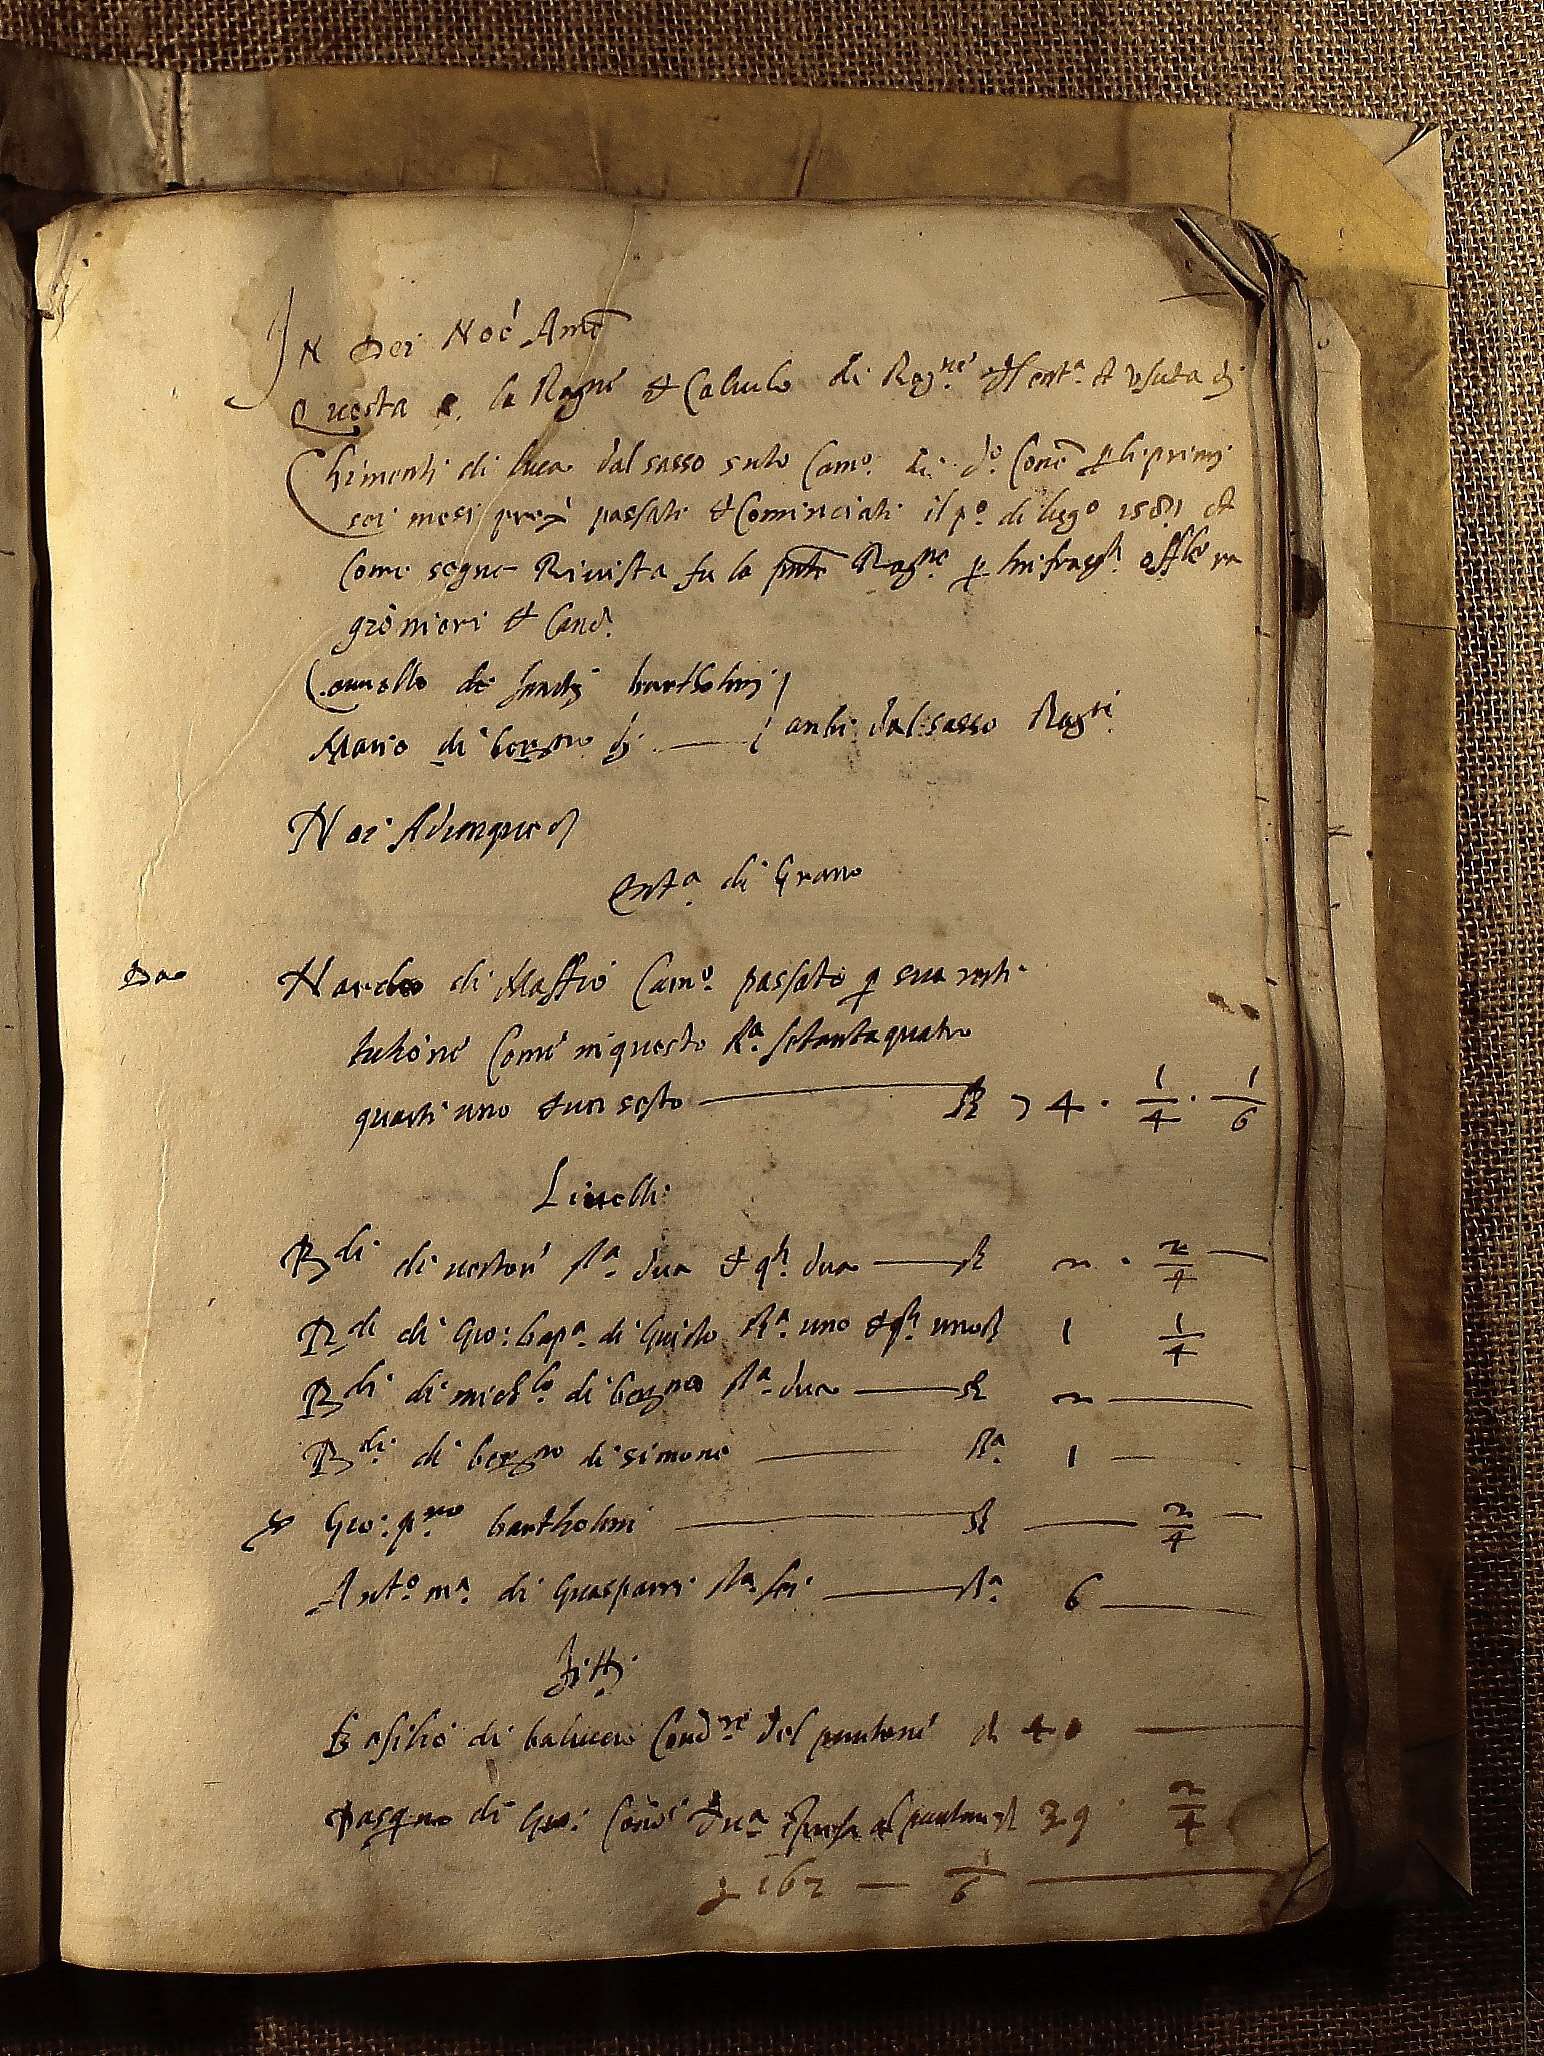 In Dei Noe Ame
Questa e la Ragne et Calculo di Ragne d'Enta et Usuta di
Chimenti di luca dal sasso suto Camo di do Cone p li primi
sei mesi passati et Cominciati il po di lugo 1581 et
Come segue Rivista fu la pnte Ragne p
gionieri et Canc.
Camillo di bartholini
Mario di berno anbi dal sasso Ragri
Noi Adunque
Enta di Grano
Da Nardo di Maffio Camo passato p sua resti
tutione Come in questo sta setantaquatro
quarti uno et un sesto st 74 · 1/4 · 1/6
Livelli
Rdi di nestore sta dua et qti dua st 2 · 2/4
Rdi di Gio: bapa di Guido sta uno et qti uno st 1 1/4
Rdi di michlo di berno sta dua st 2
Rdi di berno di simone sta 1
Gio: bartholini st 2/4
Anto ma di Guasparri sta sei sta 6
Fitti
Basilio di baluccio Condre del pantane st 40
Pasqno di Gio: 39 2/4
162 — 1/6